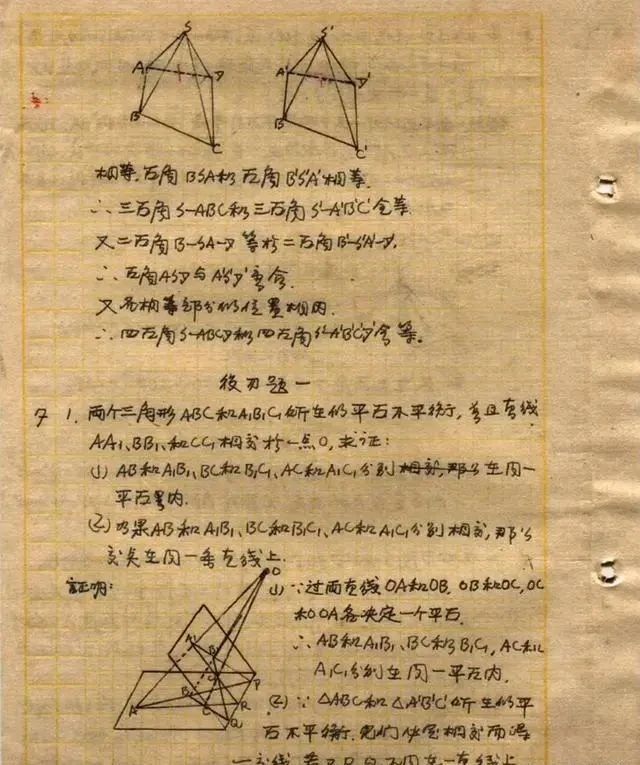 S S'
A D A' D'
B B'
C C'
相等,面角BSA和面角B'S'A'相等.
∴ 三面角S-ABC和三面角S'-A'B'C'全等.
又二面角B-SA-D等於二面角B'-S'A'-D'.
∴ 面角ASD与A'S'D'重合.
又各相等部分的位置相同.
∴ 四面角S-ABCD和四面角S'-A'B'C'D'全等。
復习题一
7 1. 两个三角形ABC和A₁B₁C₁所在的平面不平衡,并且直线
AA₁、BB₁、和CC₁相交於一点O,求证:
(1) AB和A₁B₁、BC和B₁C₁、AC和A₁C₁分别在同一
平面内.
(2) 如果AB和A₁B₁、BC和B₁C₁、AC和A₁C₁分别相交,那么
交点在同一条直线上.
証明:
O
A₁ B₁ C₁
A B C P R Q
(1) ∵过两直线OA和OB、OB和OC、OC
和OA各决定一个平面.
∴ AB和A₁B₁、BC和B₁C₁、AC和
A₁C₁分别在同一平面内.
(2) ∵ △ABC和△A'B'C'所在的平
面不平衡,它们必定相交而得
一交线,若P、R、Q不同在一直线上